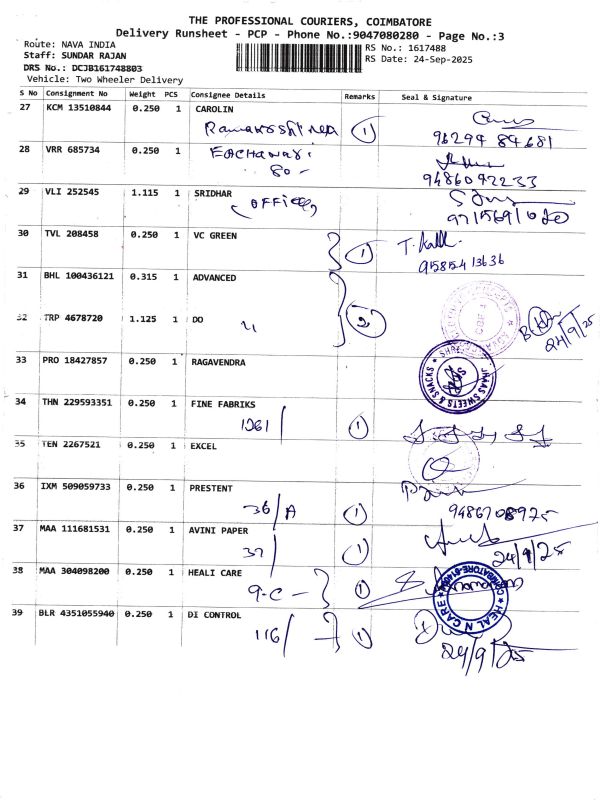 THE PROFESSIONAL COURIERS, COIMBATORE
Delivery Runsheet - PCP - Phone No.:9047080280 - Page No.:3
Route: NAVA INDIA
RS No.: 1617488
Staff: SUNDAR RAJAN
RS Date: 24-Sep-2025
DRS No.: DCJB161748803
Vehicle: Two Wheeler Delivery
S No Consignment No Weight PCS Consignee Details Remarks Seal & Signature
27 KCM 13510844 0.250 1 CAROLIN
1 96294 84681
28 VRR 685734 0.250 1
80 - 9486042233
29 VLI 252545 1.115 1 SRIDHAR
(OFFICE)
30 TVL 208458 0.250 1 VC GREEN
1
9585413636
31 BHL 100436121 0.315 1 ADVANCED
32 TRP 4678720 1.125 1 DO
2 24/9/25
33 PRO 18427857 0.250 1 RAGAVENDRA
JHAAS SWEETS & SNACKS
34 THN 229593351 0.250 1 FINE FABRIKS
1261/ 1
35 TEN 2267521 0.250 1 EXCEL
36 IXM 509059733 0.250 1 PRESTENT
36/A 1 9486708975
37 MAA 111681531 0.250 1 AVINI PAPER
37/ 1 24/9/25
38 MAA 304098200 0.250 1 HEALI CARE
9-C- 1
HEAL N CARE
39 BLR 4351055940 0.250 1 DI CONTROL
116/ 1
24/9/25